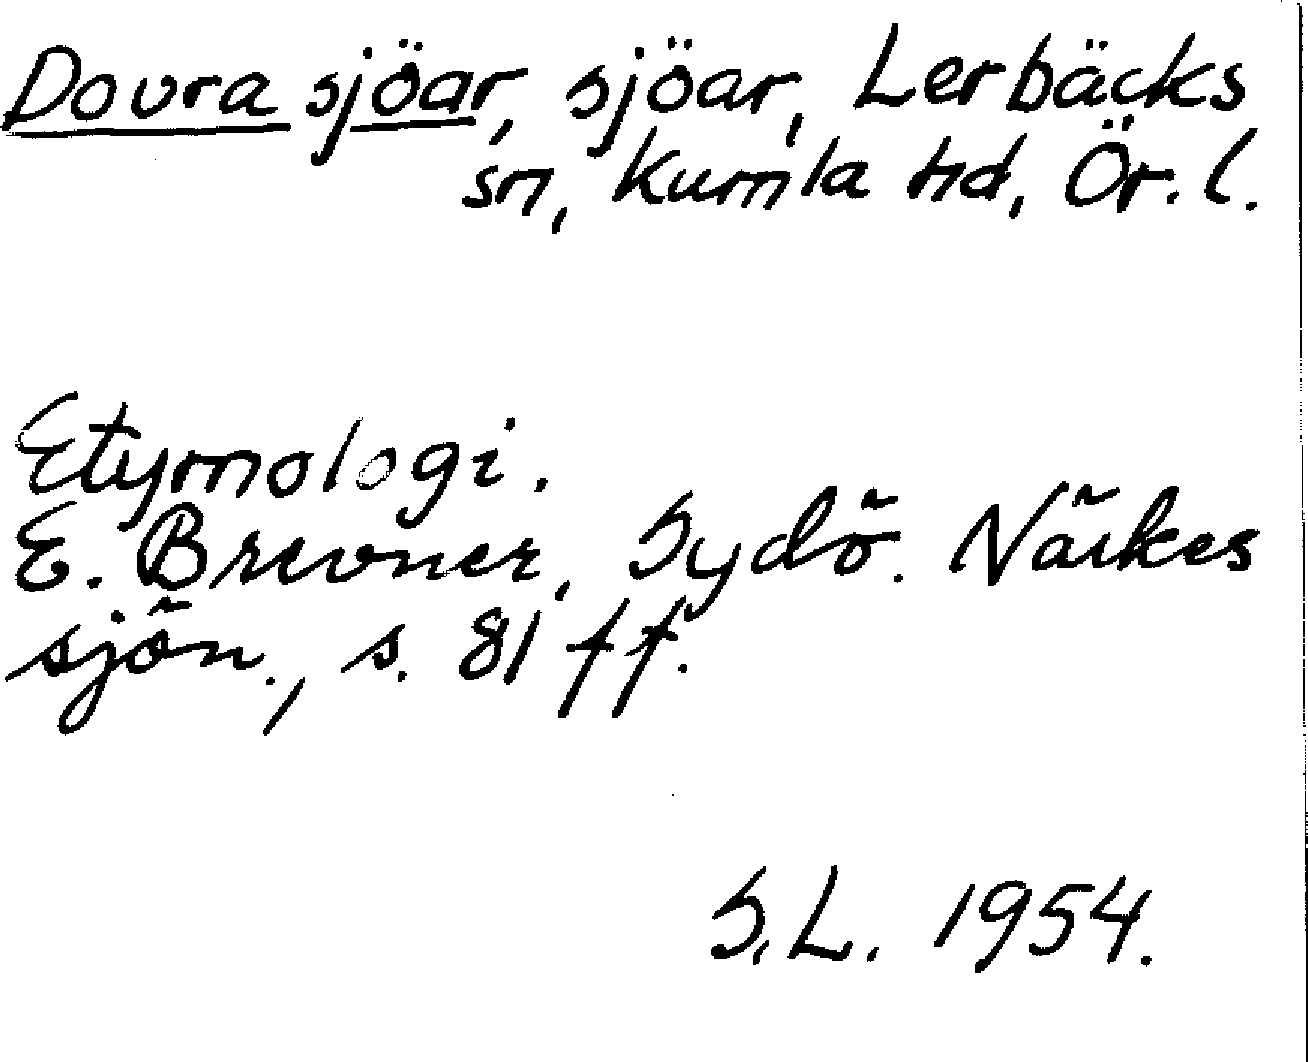 Dovra sjöar, sjöar, Lerbäcks
sn, Kumla hd, Ör. l.
Etymologi.
E. Brevner, Sydö. Närkes
sjön., s. 81 ff.
S.L. 1954.